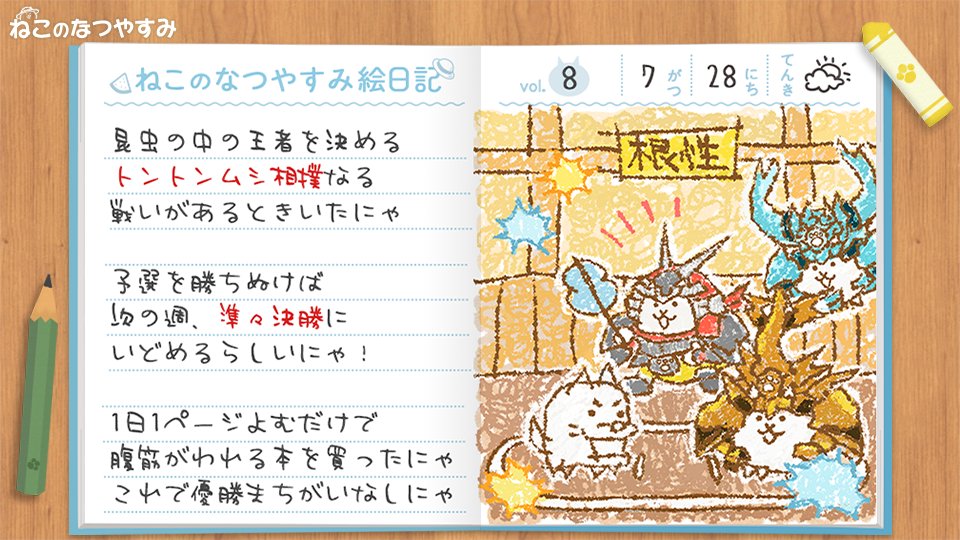 ねこのなつやすみ
ねこのなつやすみ絵日記
昆虫の中の王者を決める
トントンムシ相撲なる
戦いがあるときいたにゃ
予選を勝ちぬけば
次の週、準々決勝に
いどめるらしいにゃ!
1日1ページよむだけで
腹筋がわれる本を買ったにゃ
これで優勝まちがいなしにゃ
vol. 8 7がつ 28にち てんき
根性